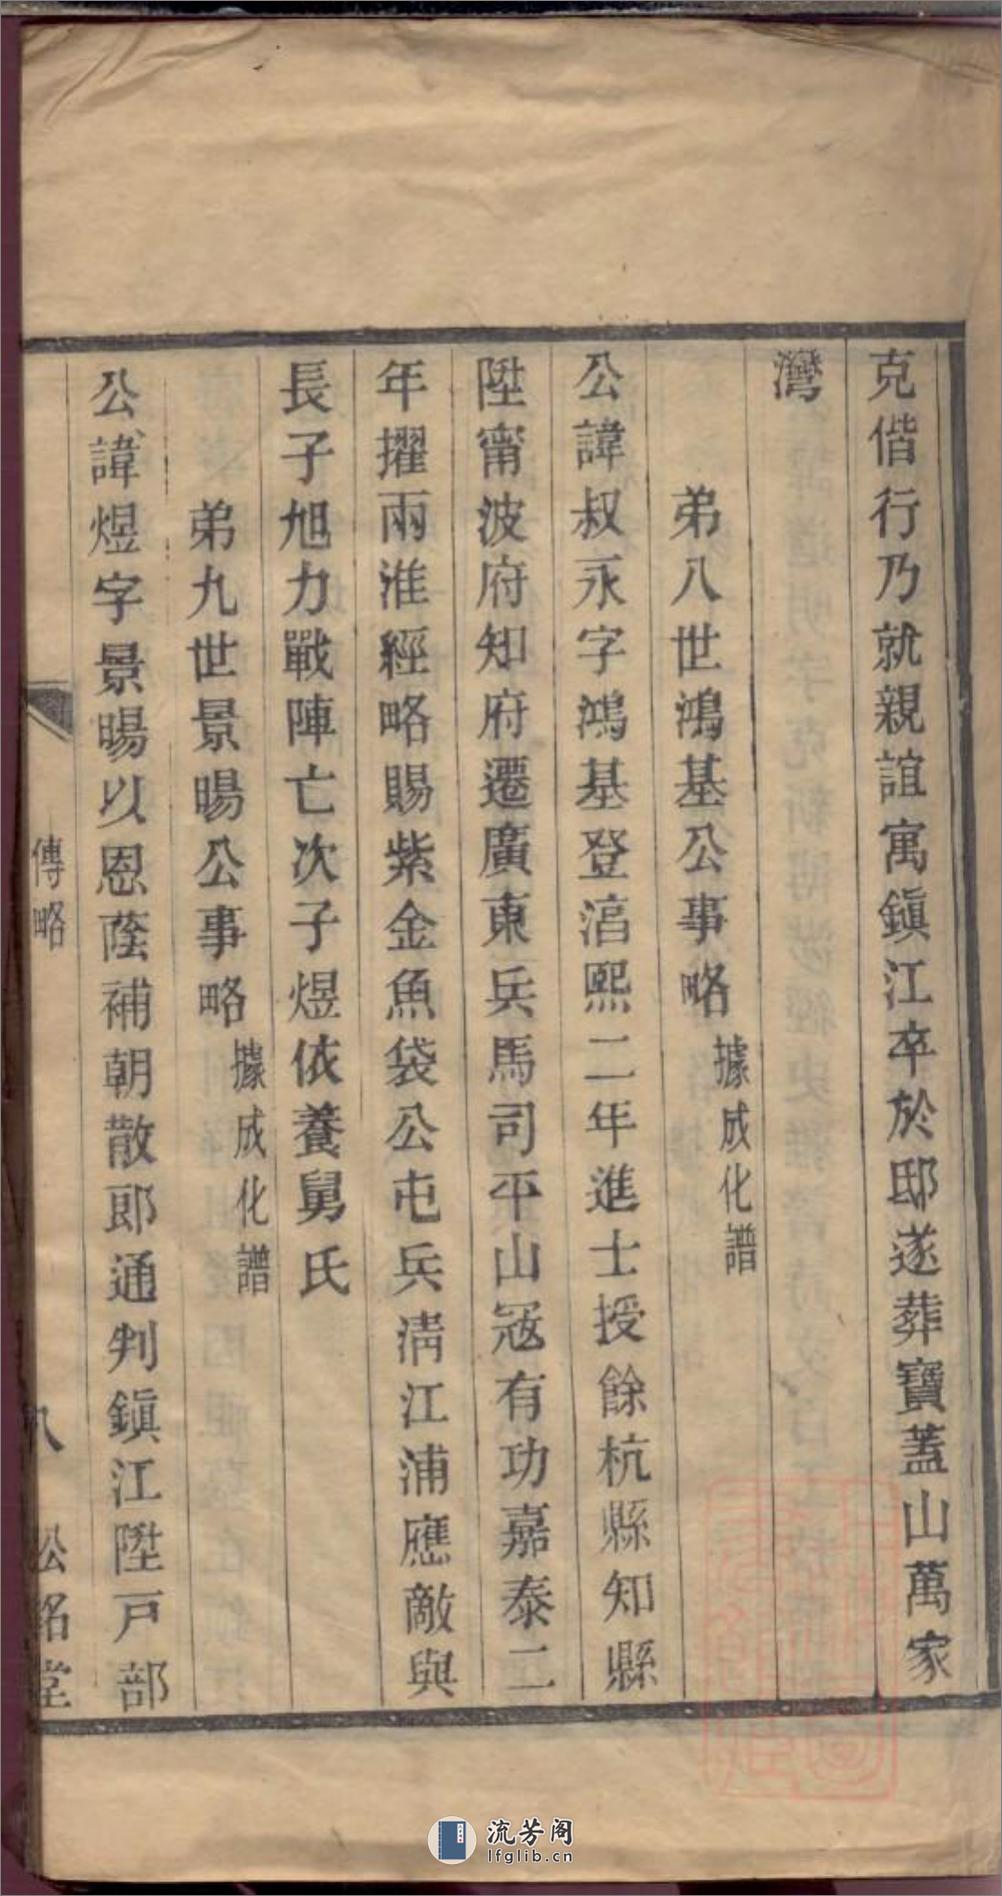 克偕行乃就親誼寓鎭江卒於邸遂葬寶蓋山萬家
灣
弟八世鴻基公事略 據成化譜
公諱叔永字鴻基登湻熙二年進士授餘杭縣知縣
陞甯波府知府遷廣東兵馬司平山冦有功嘉泰二
年擢兩淮經略賜紫金魚袋公屯兵淸江浦應敵與
長子旭力戰陣亡次子煜依養舅氏
弟九世景暘公事略 據成化譜
公諱煜字景暘以恩蔭補朝散郎通判鎭江陞戸部
傳略
八
松銘堂
流芳阁
lfglib.cn